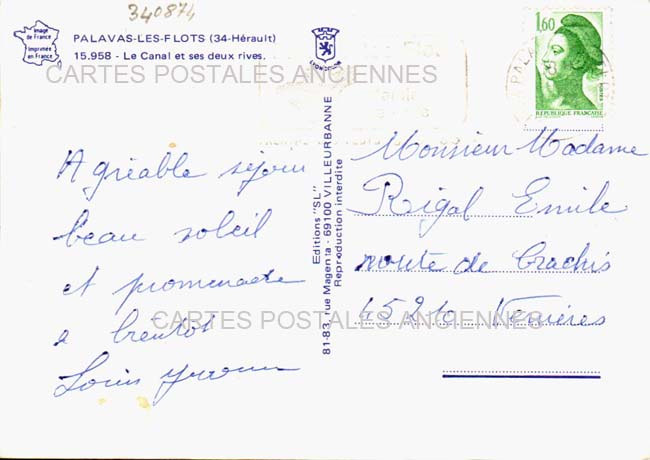 340874
Image
de France
Imprimée
en France
PALAVAS-LES-FLOTS (34-Hérault)
15.958 - Le Canal et ses deux rives.
LYONCOLOR
1,60
REPUBLIQUE FRANÇAISE
PALAVAS
CARTES POSTALES ANCIENNES
Agréable séjour
beau soleil
et promenade
a bientôt
Louis Yvonne
Editions "SL"
81-83, rue Magenta - 69100 VILLEURBANNE
Reproduction interdite
Monsieur Madame
Rigal Emile
route de
Verrières
CARTES POSTALES ANCIENNES